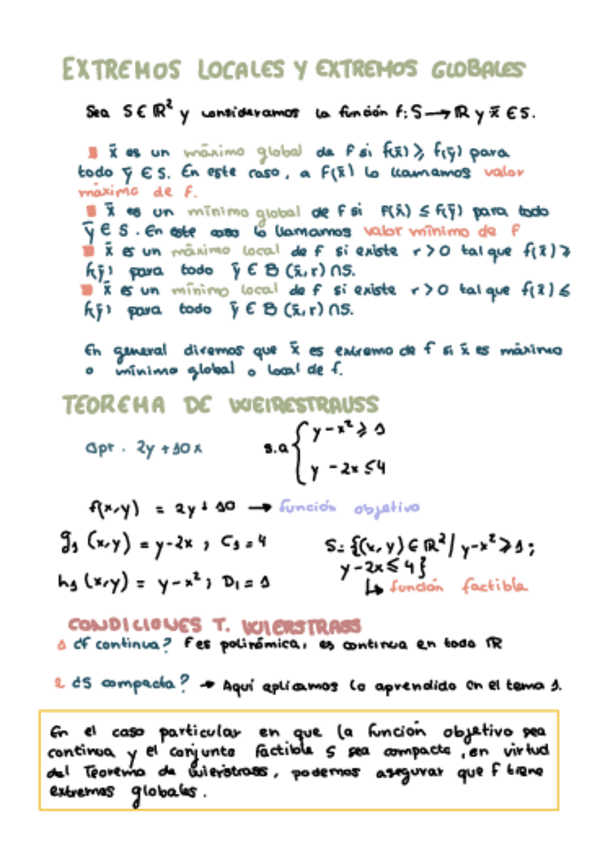 EXTREMOS LOCALES Y EXTREMOS GLOBALES
Sea S ∈ ℝ² y consideramos la función f: S → ℝ y x̄ ∈ S.
x̄ es un máximo global de f si f(x̄) ≥ f(ȳ) para
todo ȳ ∈ S. En este caso, a f(x̄) lo llamamos valor
máximo de f.
x̄ es un mínimo global de f si f(x̄) ≤ f(ȳ) para todo
ȳ ∈ S. En este caso lo llamamos valor mínimo de f
x̄ es un máximo local de f si existe r > 0 tal que f(x̄) ≥
f(ȳ) para todo ȳ ∈ B (x̄, r) ∩ S.
x̄ es un mínimo local de f si existe r > 0 tal que f(x̄) ≤
f(ȳ) para todo ȳ ∈ B (x̄, r) ∩ S.
En general diremos que x̄ es extremo de f si x̄ es máximo
o mínimo global o local de f.
TEOREMA DE WEIRESTRAUSS
Opt. 2y + 10x s.a { y - x² ≥ 1
y - 2x ≤ 4
f(x,y) = 2y + 10 → función objetivo
g₁ (x,y) = y - 2x , C₁ = 4 S = {(x, y) ∈ ℝ² / y - x² ≥ 1 ;
h₁ (x,y) = y - x² ; D₁ = 1 y - 2x ≤ 4}
↳ función factible
CONDICIONES T. WIERSTRASS
1 ¿f continua? F es polinómica, es continua en todo ℝ
2 ¿S compacta? → Aquí aplicamos lo aprendido en el tema 1.
En el caso particular en que la función objetivo sea
continua y el conjunto factible S sea compacto, en virtud
del Teorema de Wierstrass, podemos asegurar que f tiene
extremos globales.